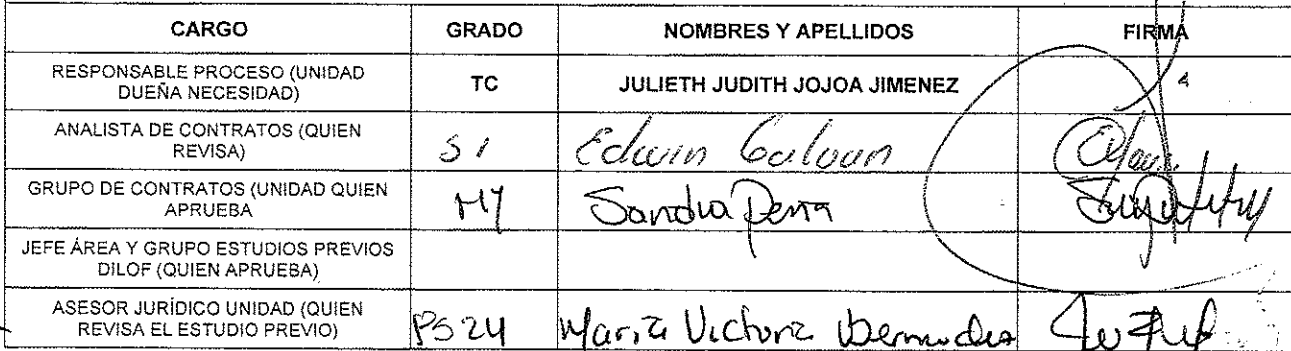 CARGO GRADO NOMBRES Y APELLIDOS FIRMA
RESPONSABLE PROCESO (UNIDAD
DUEÑA NECESIDAD) TC JULIETH JUDITH JOJOA JIMENEZ
ANALISTA DE CONTRATOS (QUIEN
REVISA) SI Edwin Galvan
GRUPO DE CONTRATOS (UNIDAD QUIEN
APRUEBA MY Sandra Peña
JEFE ÁREA Y GRUPO ESTUDIOS PREVIOS
DILOF (QUIEN APRUEBA)
ASESOR JURÍDICO UNIDAD (QUIEN
REVISA EL ESTUDIO PREVIO) PS24 Maria Victoria Bermudes